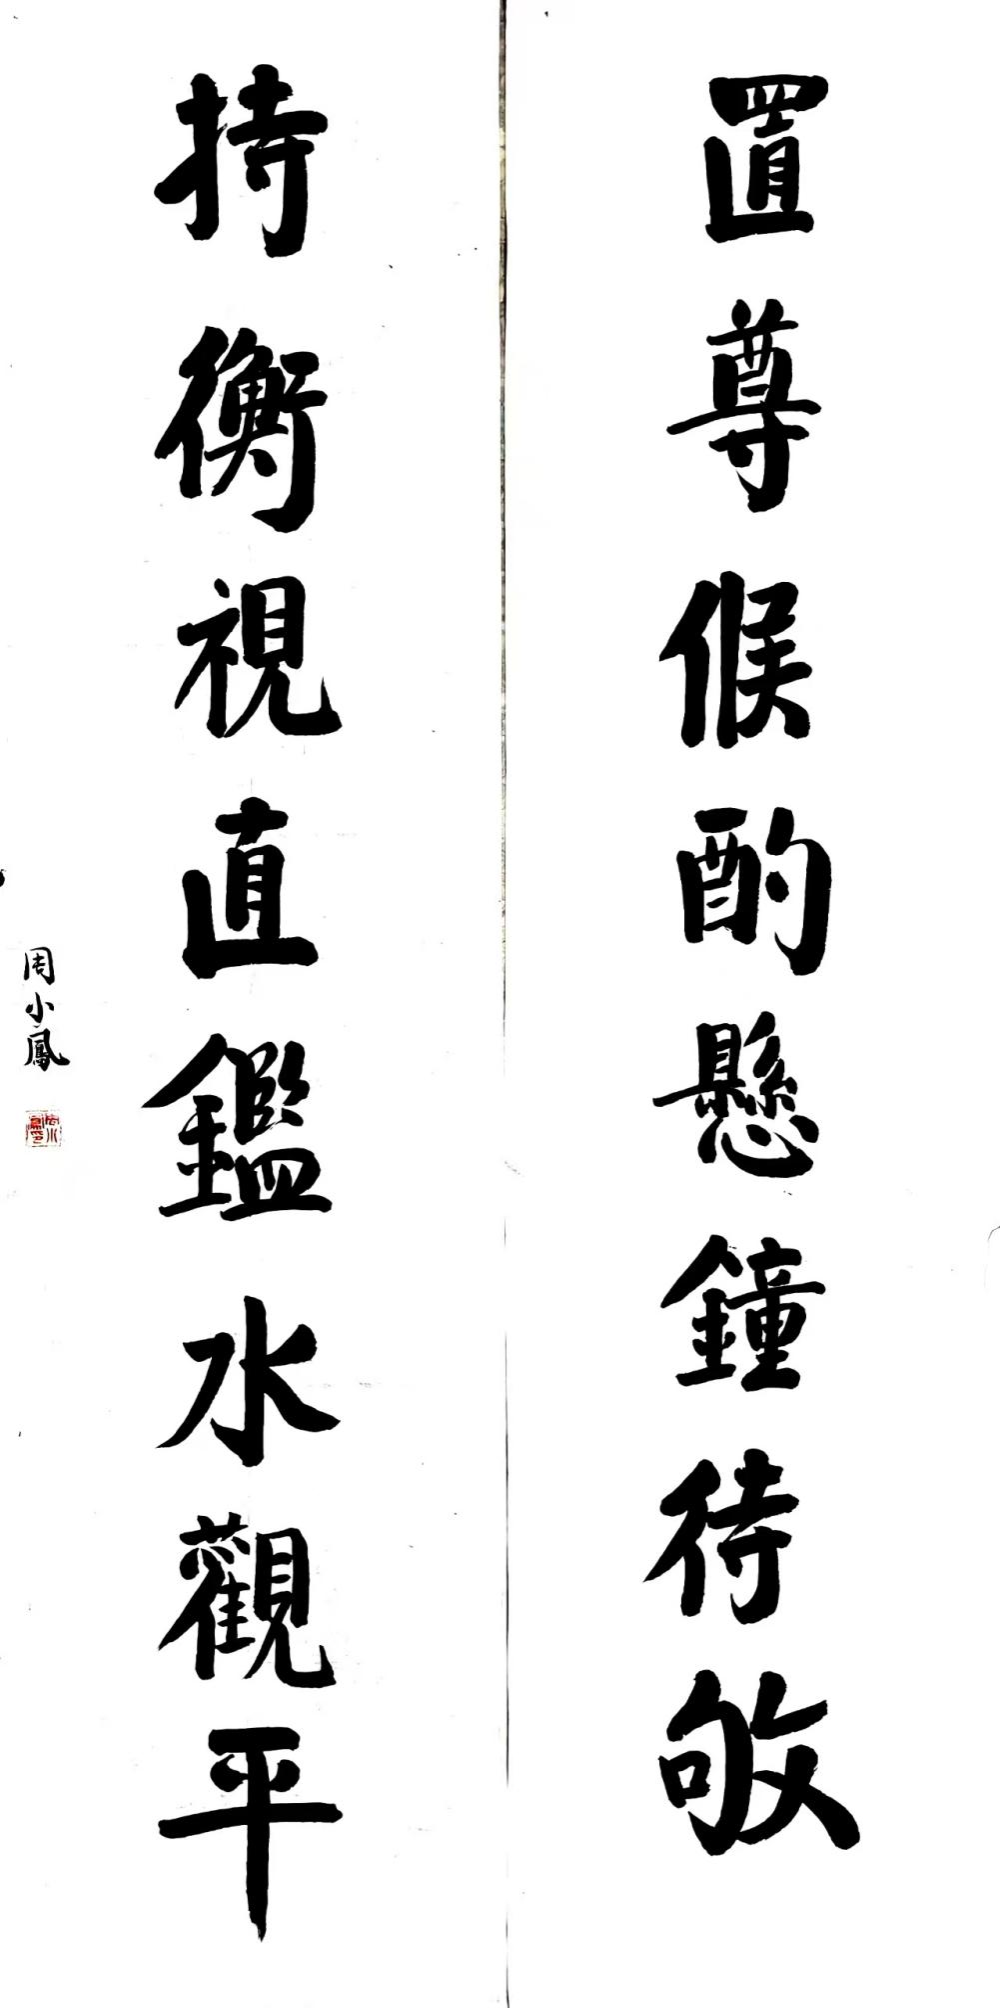 置尊候酌懸鐘待敂
持衡視直鑑水觀平
周小鳳